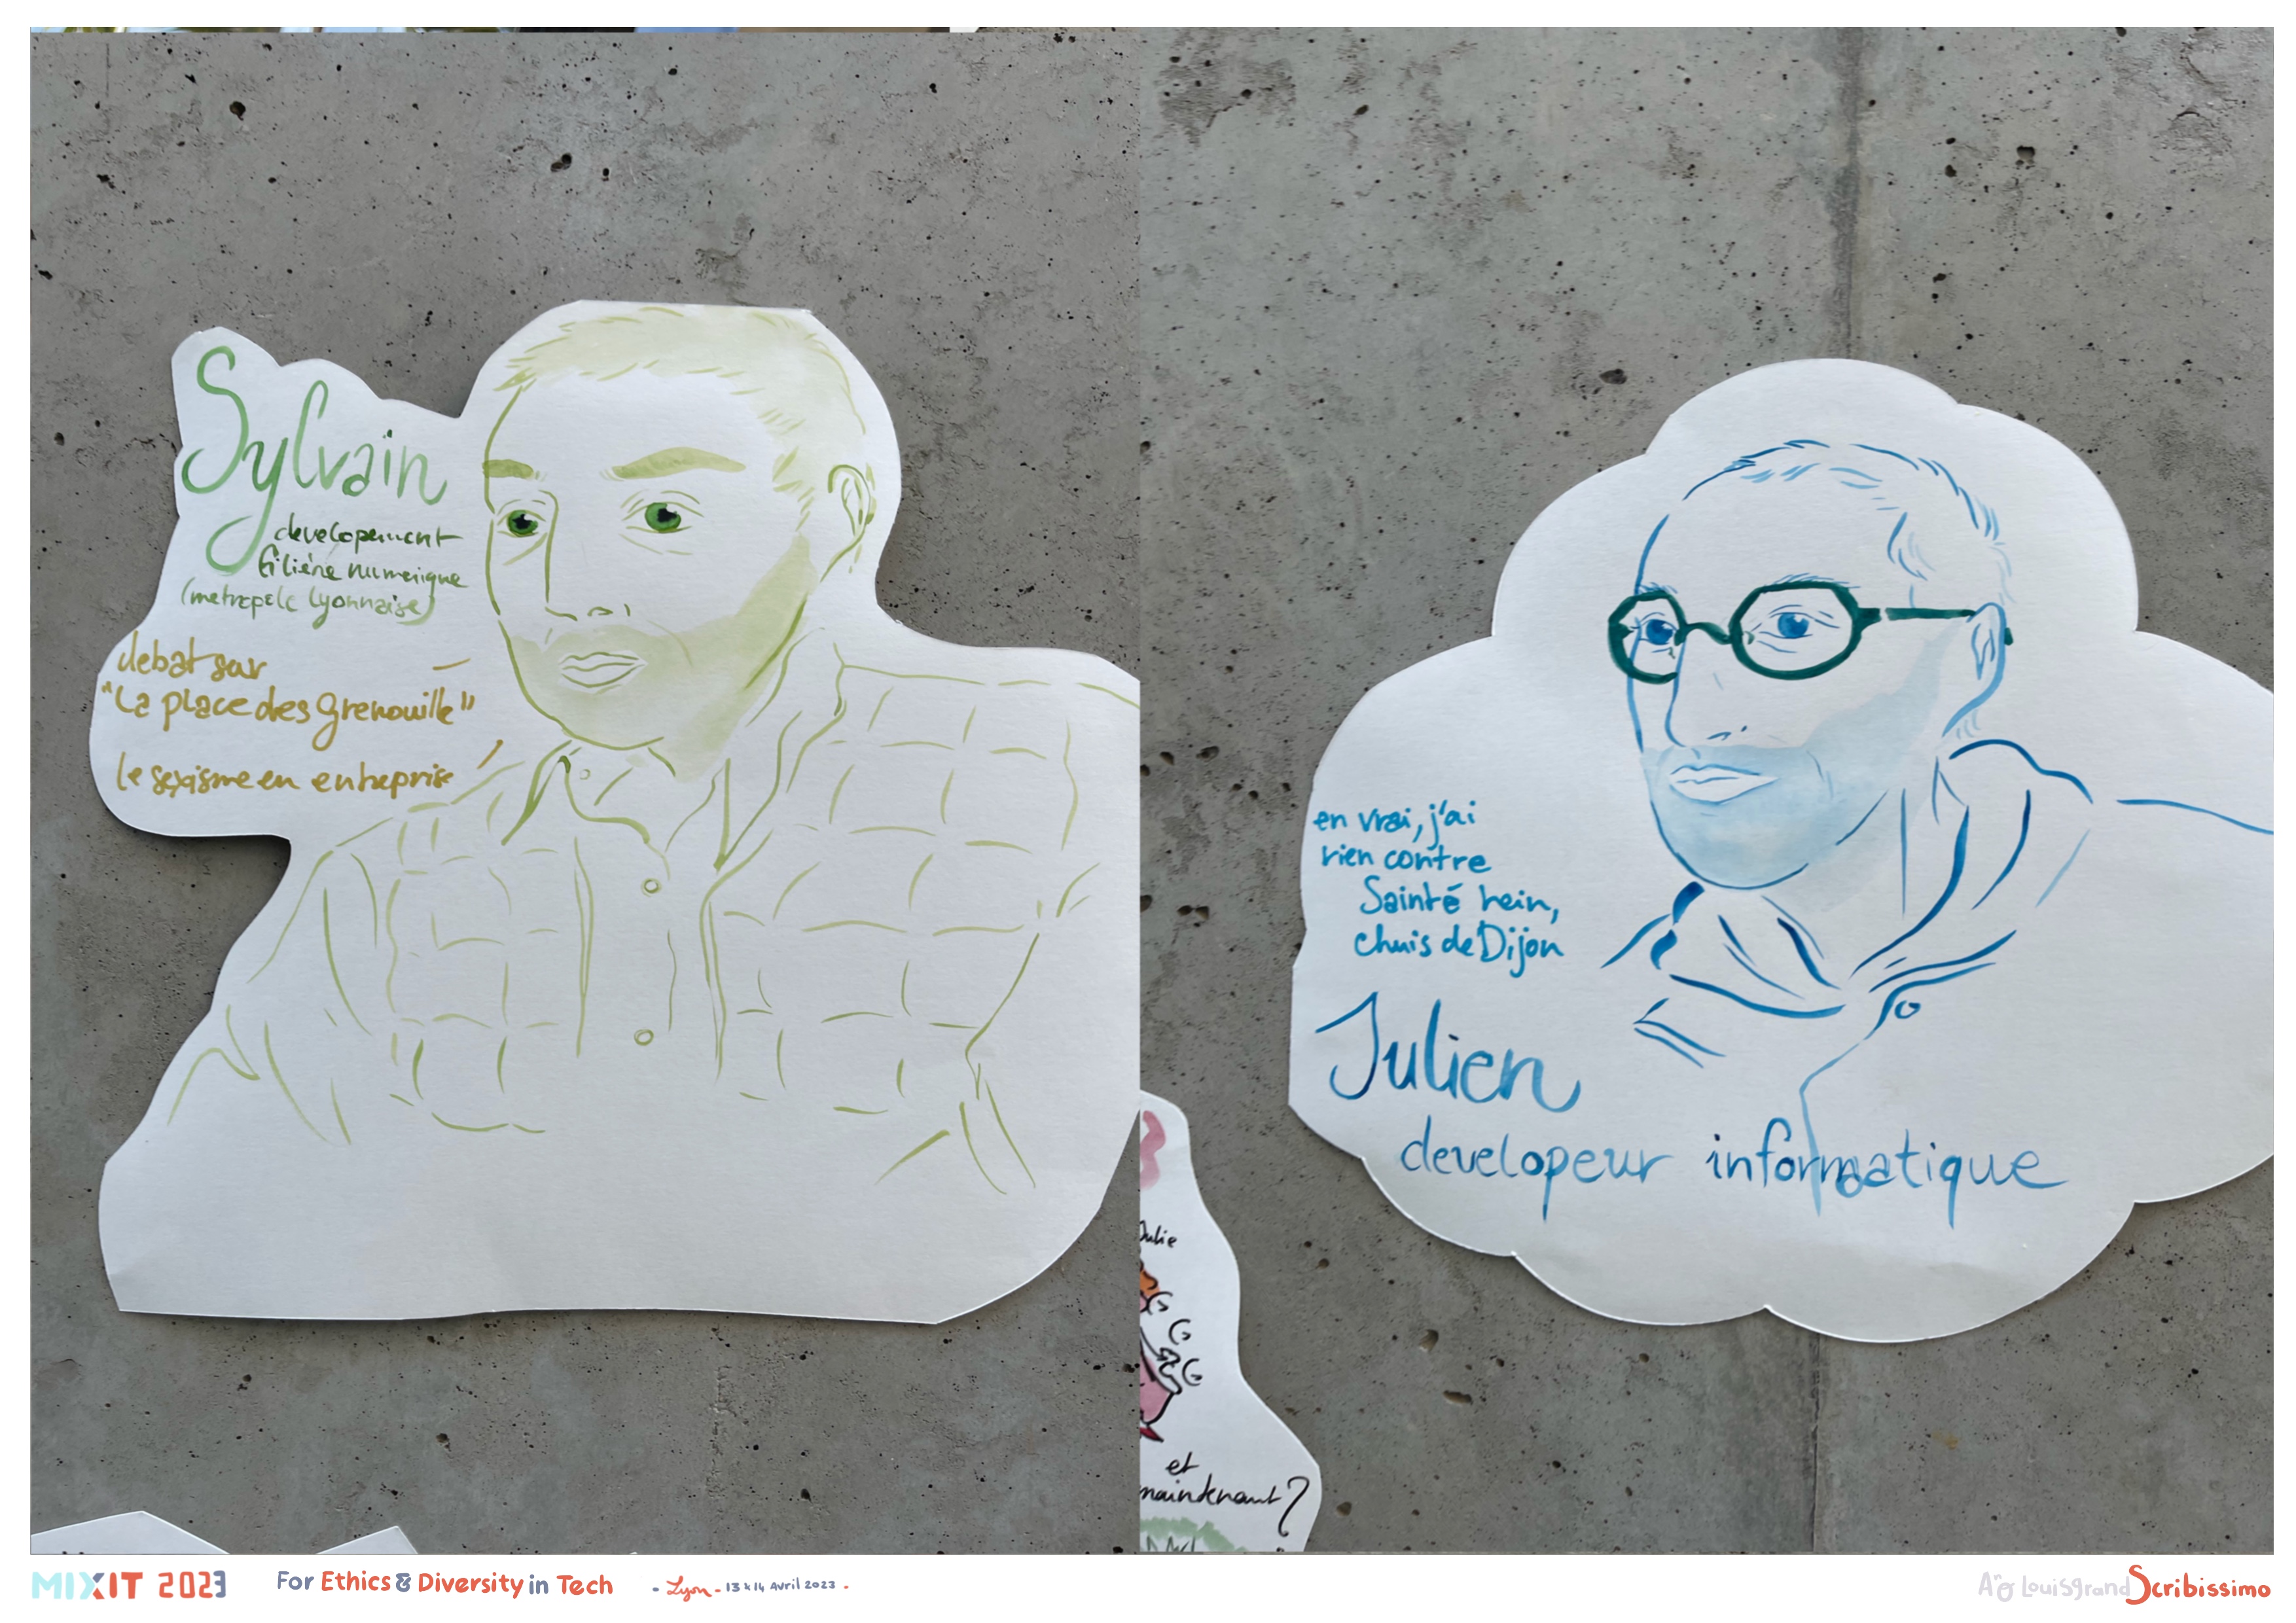 Sylvain
developement
filière numérique
(métropole lyonnaise)
debat sur
"La place des grenouille"
le sexisme en entreprise
en vrai, j'ai
rien contre
Sainté hein,
chuis de Dijon
Julien
developeur informatique
Julie
et
maintenant?
MIXIT 2023
For Ethics & Diversity in Tech
- Lyon - 13 & 14 Avril 2023 -
Louisgrand Scribissimo